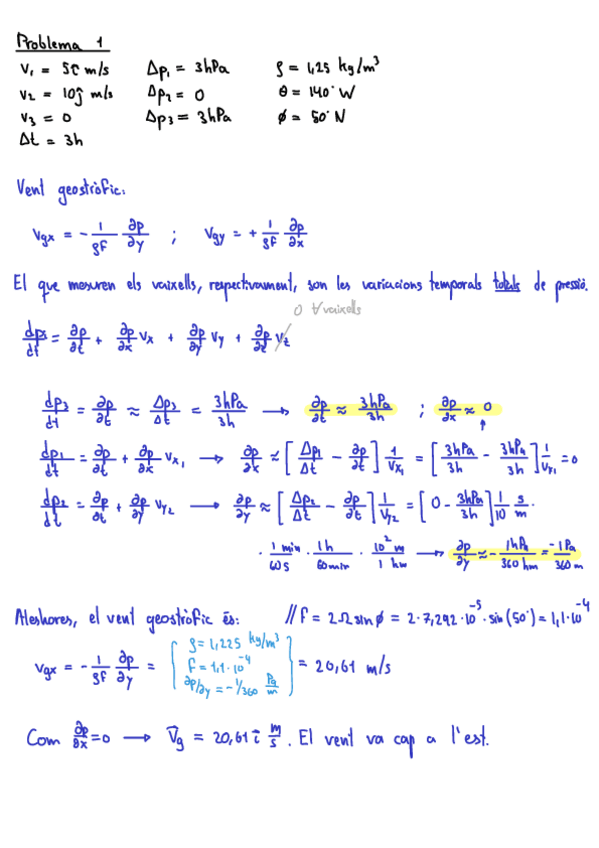 Problema 1
v₁ = 5î m/s Δp₁ = 3hPa ρ = 1,25 kg/m³
v₂ = 10ĵ m/s Δp₂ = 0 θ = 140° W
v₃ = 0 Δp₃ = 3hPa ϕ = 50° N
Δt = 3h
Vent geostròfic:
Vgx = - 1/ρf ∂p/∂y ; Vgy = + 1/ρf ∂p/∂x
El que mesuren els vaixells, respectivament, son les variacions temporals totals de pressió.
0 ∀vaixells
dps/dt = ∂p/∂t + ∂p/∂x Vx + ∂p/∂y Vy + ∂p/∂z Vz
dp₃/dt = ∂p/∂t ≈ Δp₃/Δt = 3hPa/3h → ∂p/∂t ≈ 3hPa/3h ; ∂p/∂x ≈ 0
dp₁/dt = ∂p/∂t + ∂p/∂x Vx₁ → ∂p/∂x ≈ [Δp₁/Δt - ∂p/∂t] 1/Vx₁ = [3hPa/3h - 3hPa/3h] 1/Vx₁ = 0
dp₂/dt = ∂p/∂t + ∂p/∂y Vy₂ → ∂p/∂y ≈ [Δp₂/Δt - ∂p/∂t] 1/Vy₂ = [0 - 3hPa/3h] 1/10 s/m ·
· 1 min/60s · 1h/60min · 10² m/1 hm → ∂p/∂y ≈ - 1hPa/360 hm = -1Pa/360m
Aleshores, el vent geostròfic és: // f = 2Ω sinϕ = 2·7,292·10⁻⁵·sin(50°) = 1,1·10⁻⁴
Vgx = - 1/ρf ∂p/∂y = { ρ = 1,225 kg/m³ f = 1,1·10⁻⁴ ∂p/∂y = -1/360 Pa/m } = 20,61 m/s
Com ∂p/∂x = 0 → V⃗g = 20,61 î m/s. El vent va cap a l'est.